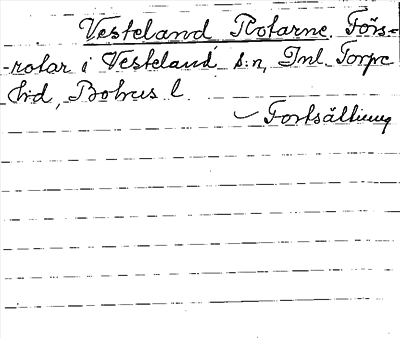 Vesteland Rotarne. Förs=
-rotar i Vesteland s:n, Inl. Torpe
hd, Bohus l.
Fortsättning